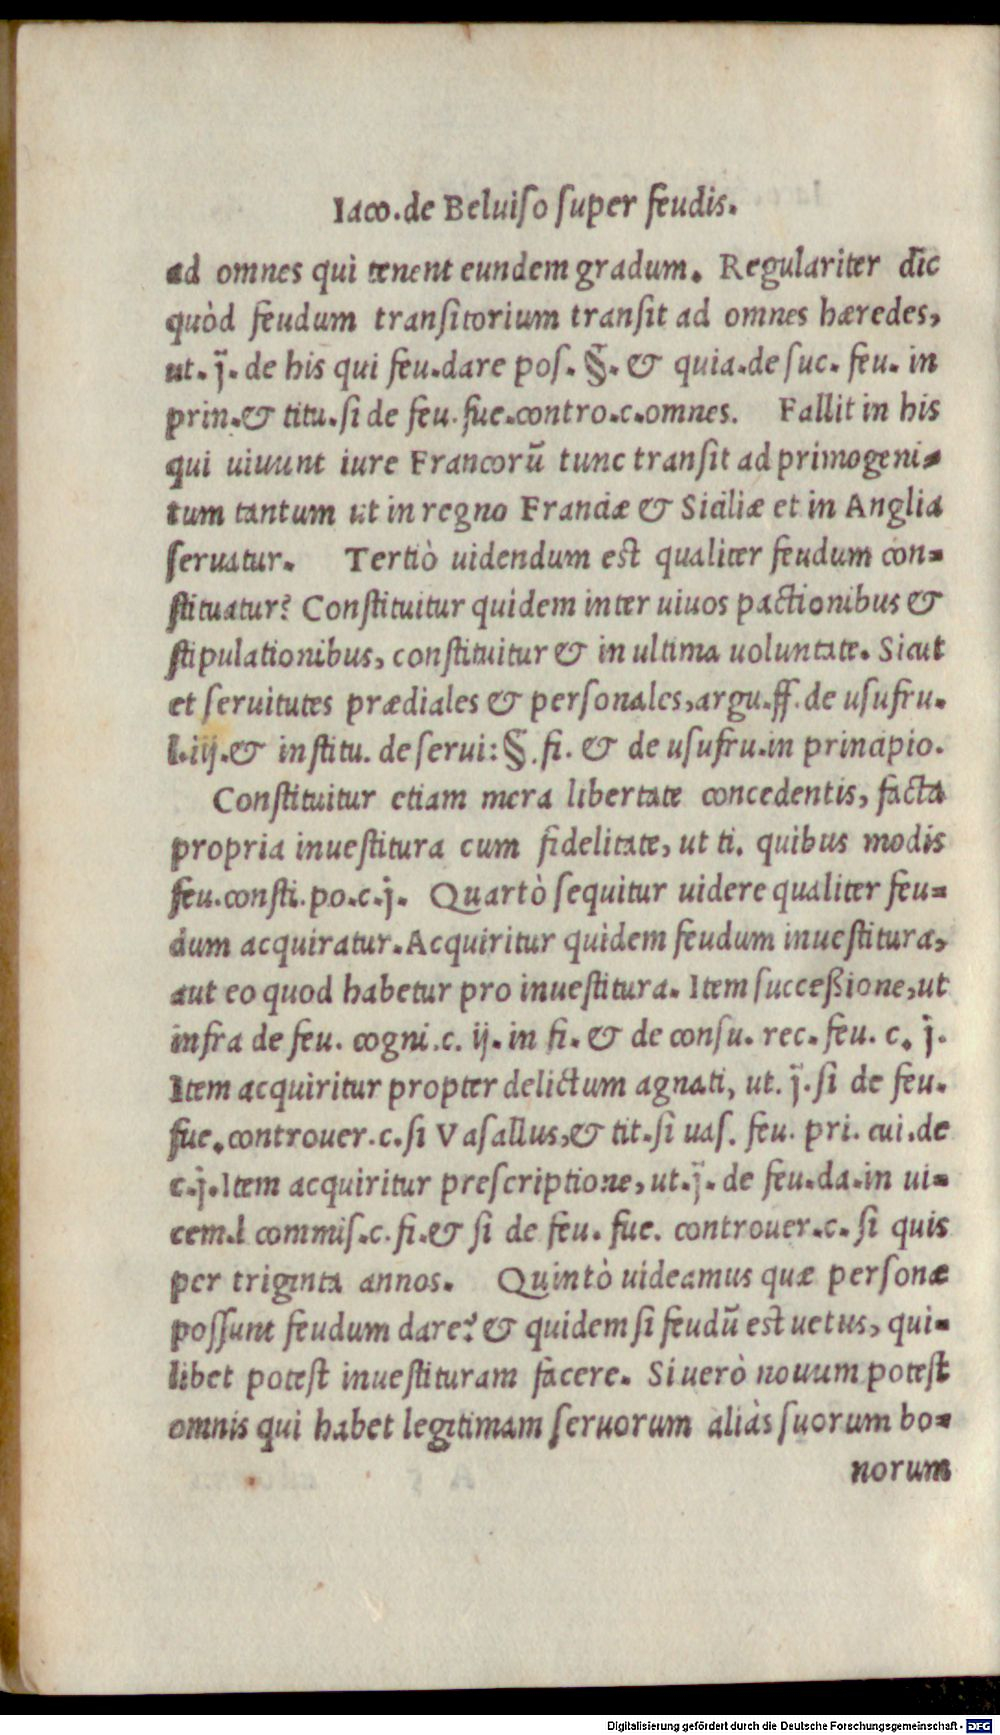 Iaco.de Beluiſo ſuper feudis.
ad omnes qui tenent eundem gradum. Regulariter dic̄
quòd feudum tranſitorium tranſit ad omnes hæredes,
ut. j̃. de his qui feu.dare poſ. §. & quia.de ſuc. feu. in
prin.& titu.ſi de feu.fue.contro.c.omnes. Fallit in his
qui uiuunt iure Francorū tunc tranſit ad primogeni-
tum tantum ut in regno Franciæ & Siciliæ et in Anglia
ſeruatur. Tertiò uidendum est qualiter feudum con-
ſtituatur? Conſtituitur quidem inter uiuos pactionibus &
ſtipulationibus, conſtituitur & in ultima uoluntate. Sicut
et ſeruitutes prædiales & perſonales,argu.ff.de uſufru.
l.iij.& inſtitu. de ſerui: §.fi. & de uſufru.in principio.
Conſtituitur etiam mera libertate concedentis, facta
propria inueſtitura cum fidelitate, ut ti. quibus modis
feu.conſti.po.c.j. Quartò ſequitur uidere qualiter feu-
dum acquiratur.Acquiritur quidem feudum inueſtitura,
aut eo quod habetur pro inueſtitura. Item ſucceßione,ut
infra de feu. cogni.c. ij. in fi. & de conſu. rec. feu. c. j.
Item acquiritur propter delictum agnati, ut. j̃. ſi de feu.
fue.controuer.c.ſi Vaſallus,& tit.ſi uaſ. feu. pri. cui.de
c.j.Item acquiritur preſcriptione, ut.j̃. de feu.da.in ui-
cem.l commiſ.c.fi.& ſi de feu. fue. controuer.c. ſi quis
per triginta annos. Quintò uideamus quæ perſonæ
poſſunt feudum dare? & quidem ſi feudū est uetus, qui-
libet poteſt inueſtituram facere. Si uerò nouum poteſt
omnis qui habet legitimam ſeruorum aliàs ſuorum bo-
norum
Digitalisierung gefördert durch die Deutsche Forschungsgemeinschaft - DFG